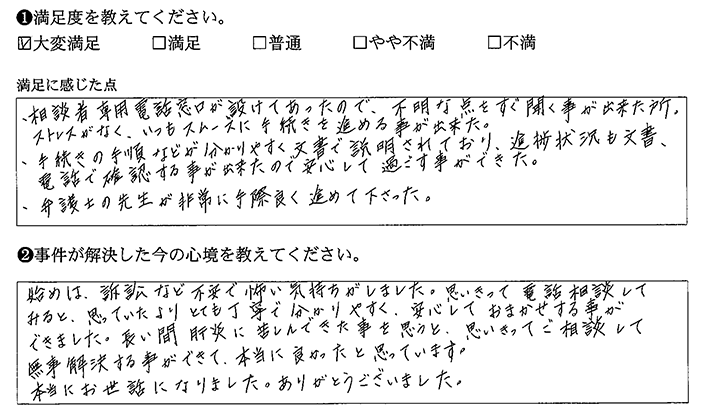 ❶満足度を教えてください。
☑大変満足 □満足 □普通 □やや不満 □不満
満足に感じた点
、相談者専用電話窓口が設けてあったので、不明な点をすぐ聞く事が出来た所。
ストレスがなく、いつもスムーズに手続きを進める事が出来た。
・手続きの手順などが分かりやすく文書で説明されており、進捗状況も文書、
電話で確認する事が出来たので安心して過ごす事ができた。
・弁護士の先生が非常に手際良く進めて下さった。
❷事件が解決した今の心境を教えてください。
始めは、訴訟など不安で怖い気持ちがしました。思いきって電話相談して
みると、思っていたよりとても丁寧で分かりやすく、安心しておまかせする事が
できました。長い間肝炎に苦しんできた事を思うと、思いきってご相談して
無事解決する事ができて、本当に良かったと思っています。
本当にお世話になりました。ありがとうございました。